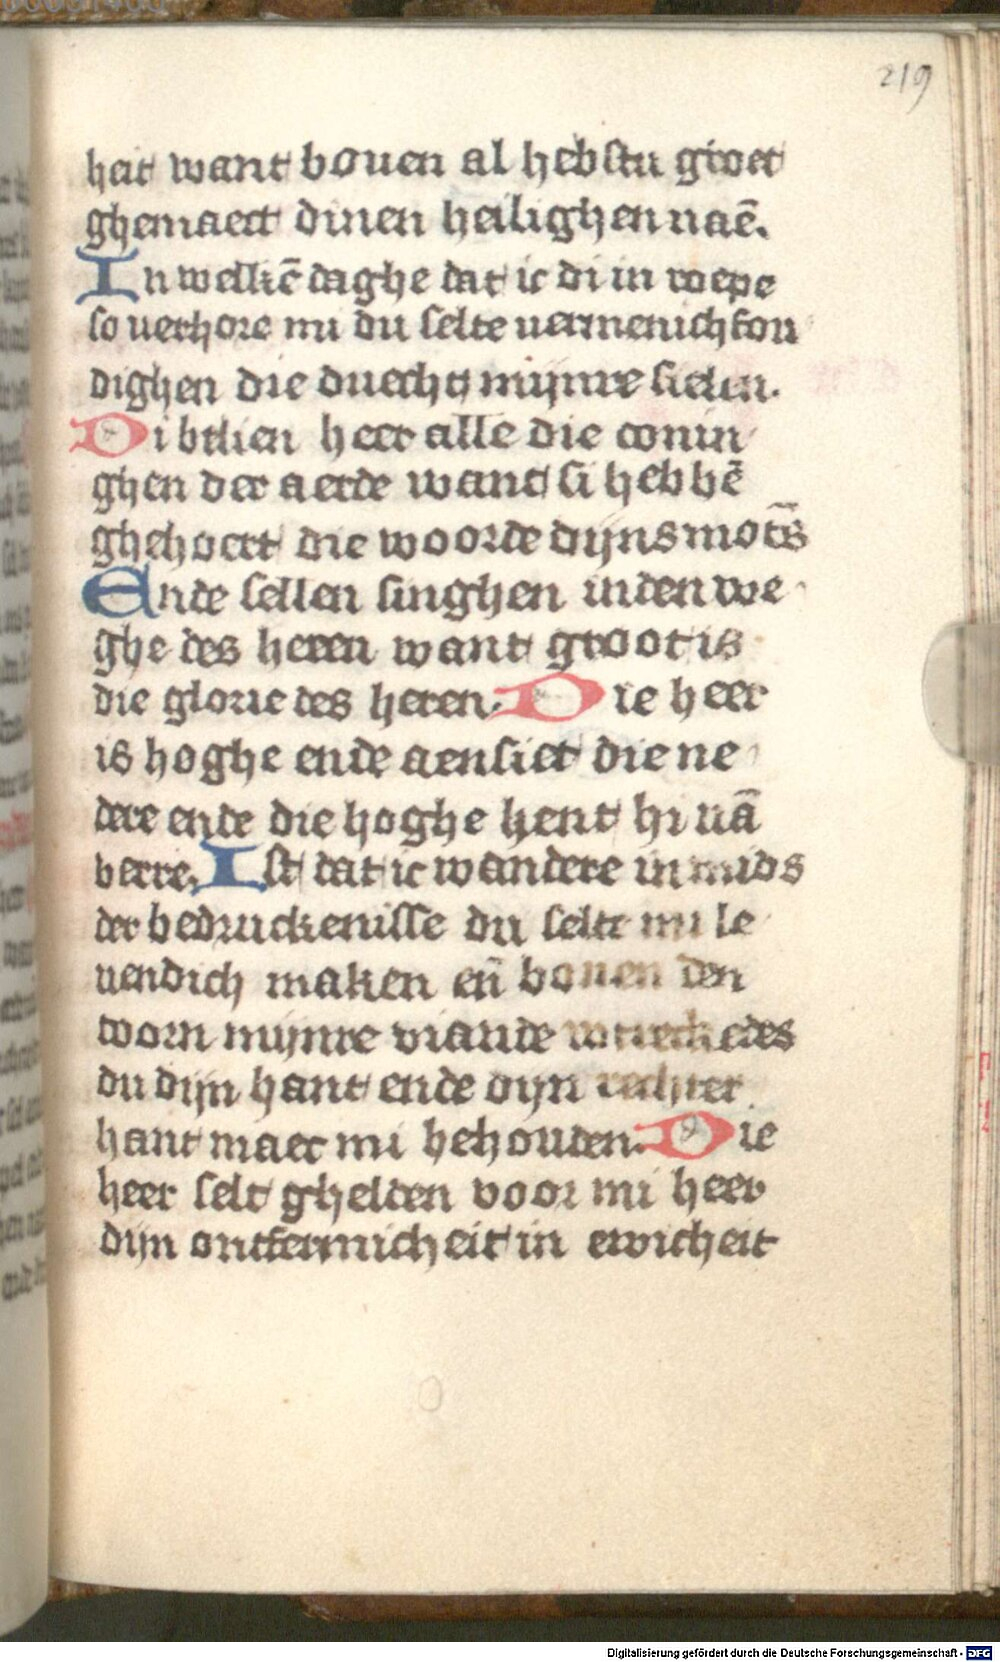 219
heit want bouen al hebstu groet
ghemaect dinen heilighen naē.
In welkē daghe dat ic di in roepe
so uerhore mi du selte uermenichfou
dighen die duecht mijnre sielen.
Di belien heer alle die conin
ghen der aerde want si hebbē
ghehoert die woorde dijns mōts
Ende sellen singhen in den we
ghe des heren want groot is
die glorie des heren. Die heer
is hoghe ende aensiet die ne
dere ende die hoghe kent hi uā
verre. Ist dat ic wandere in mids
der bedruckenisse du selte mi le
uendich maken eñ bouen den
torn mijnre viande wtreckedes
du dijn hant ende dijn rechter
hant maec mi behouden. Die
heer selt ghelden voor mi heer
dijn ontfermicheit in ewicheit
Digitalisierung gefördert durch die Deutsche Forschungsgemeinschaft - DFG